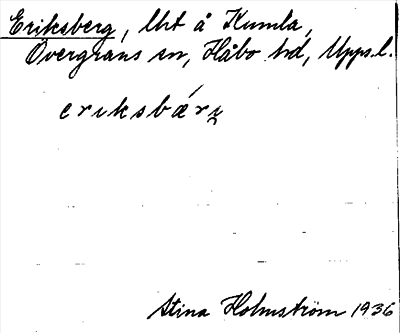 Eriksberg, lht å Kumla,
Övergrans sn, Håbo hd, Upps. l.
eriksbǽri̯
Stina Holmström 1936